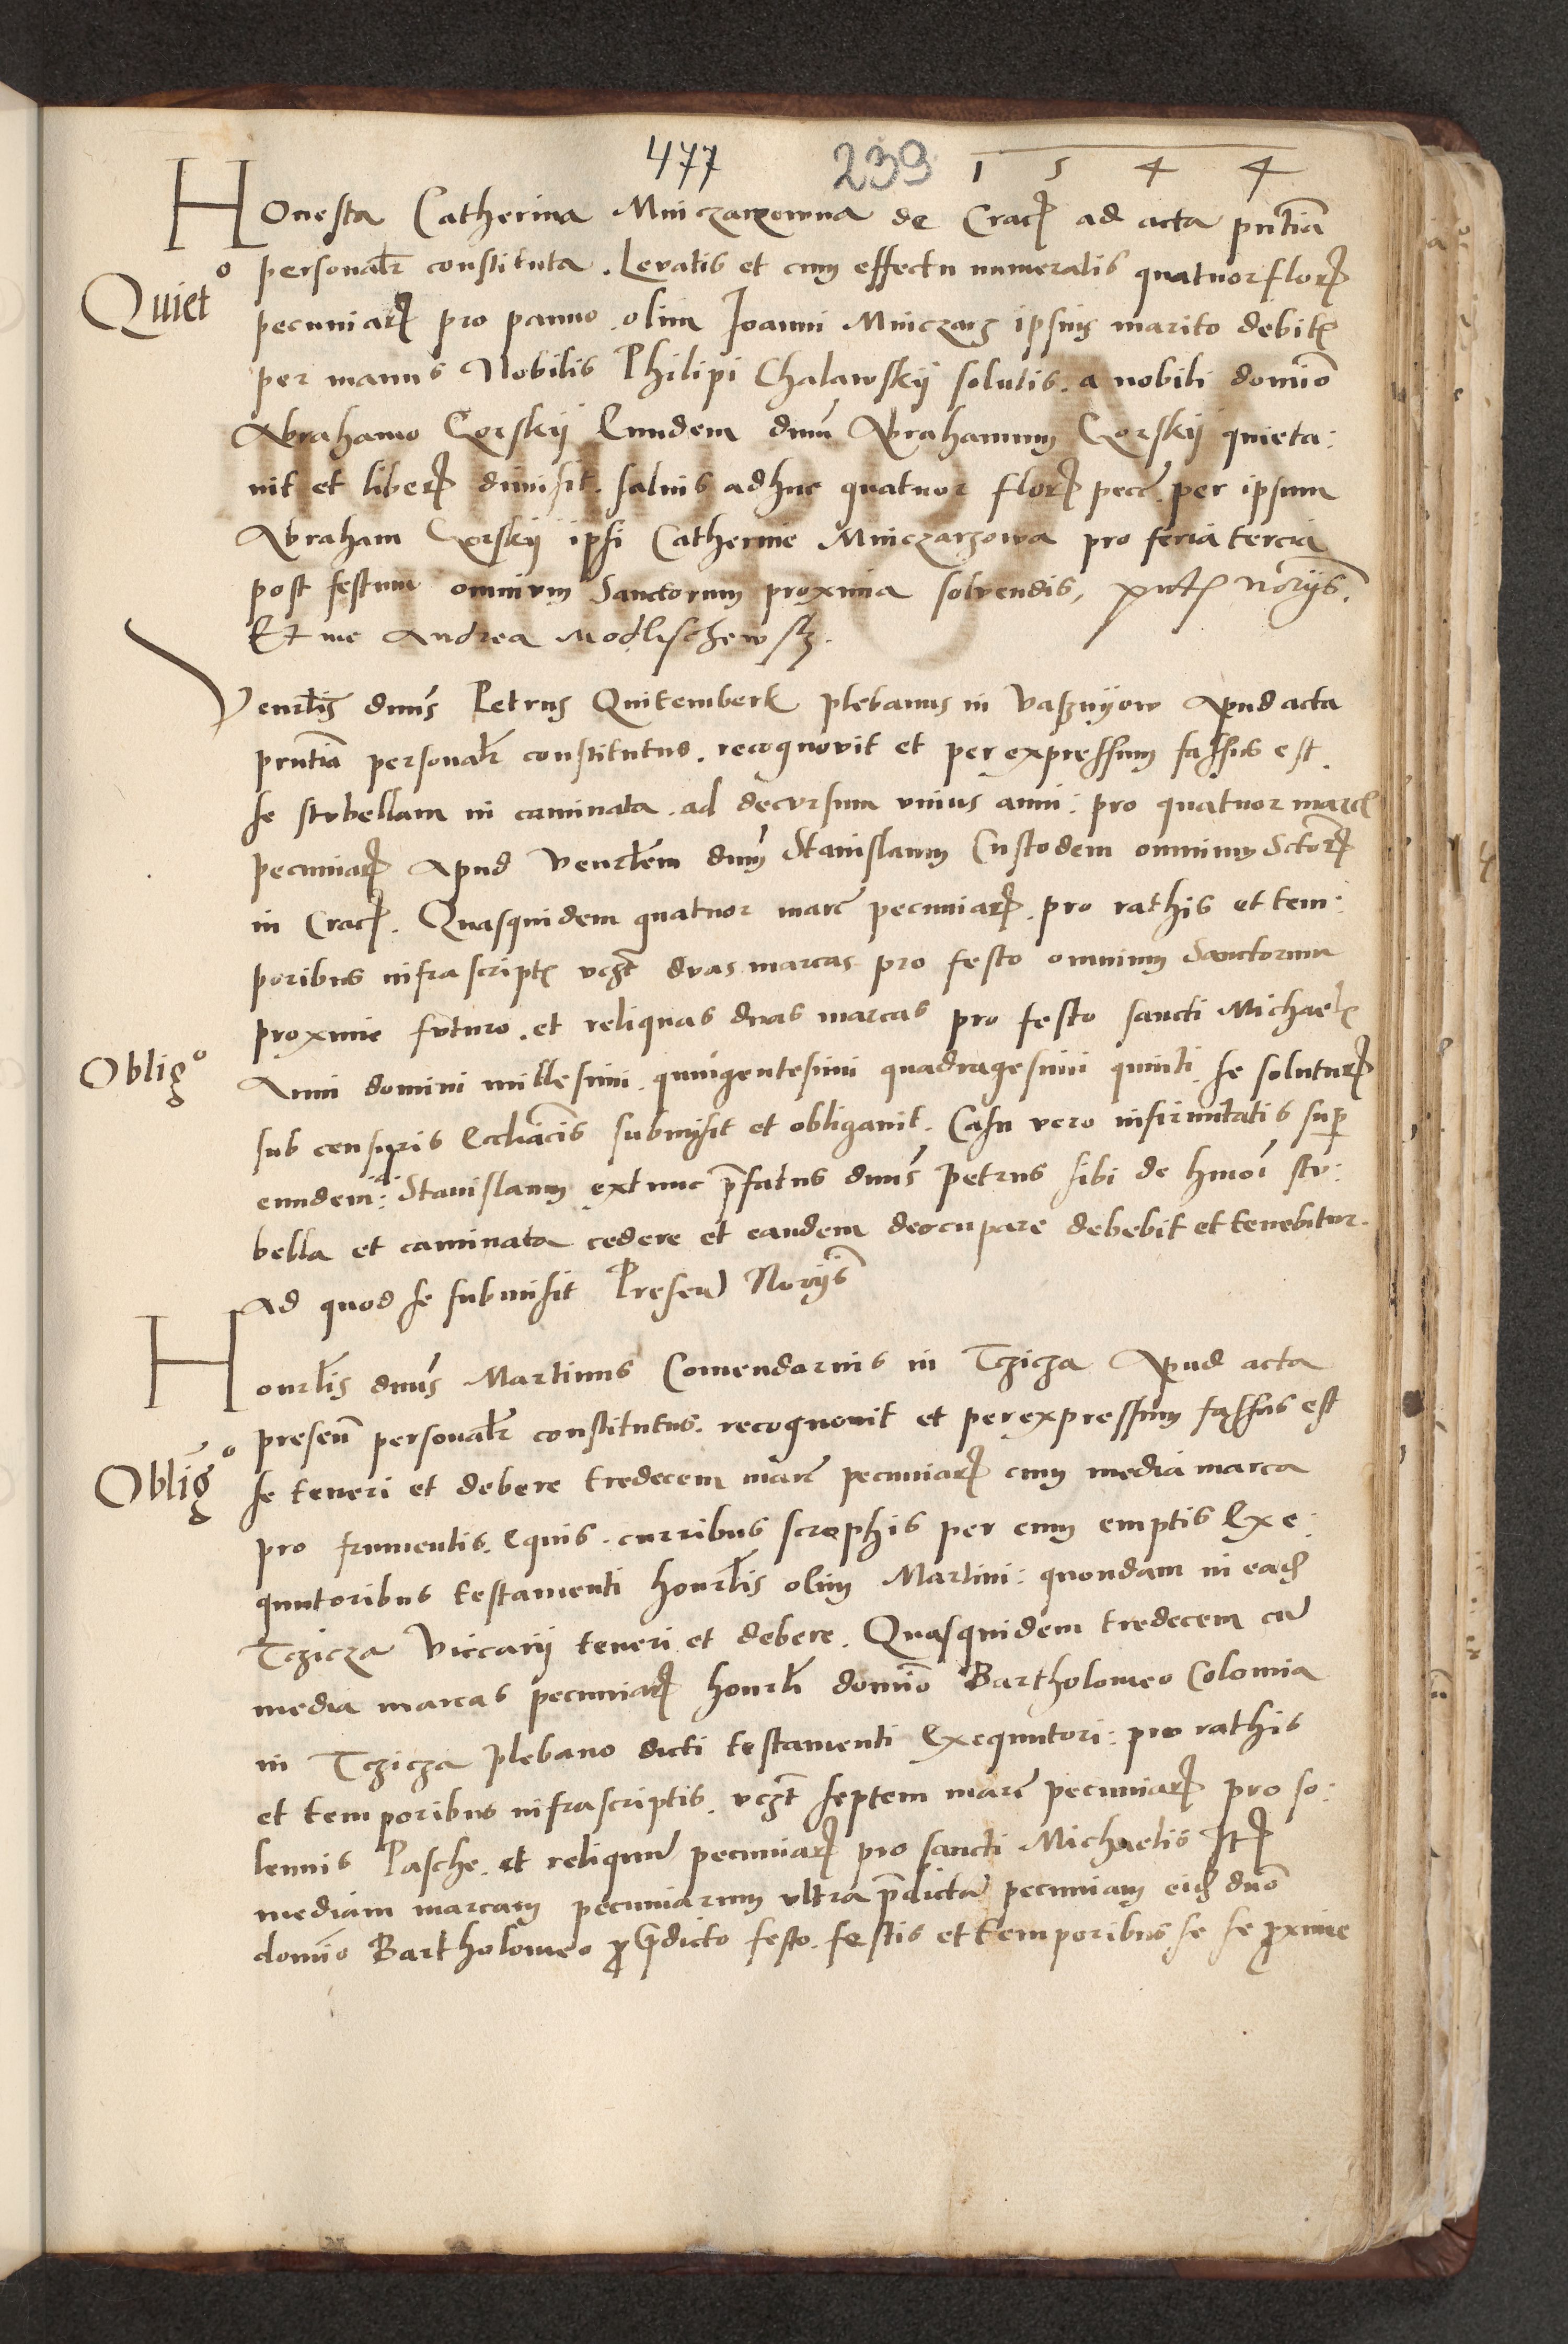 477 239 1 5 4 4
HOnesta Catherina Mniczarzowna de Crac ad acta pntia
Quieto personalr constituta. Levatis et cum effectu numeratis quatuor flor
pecuniar pro panno olim Joanni Mniczarz ipsius marito debit
per manus Nobilis Philipi Chalawskij solutis. a nobili domio
Abrahamo Gorskij Eundem dnm Abrahamum Gorskij quieta:
uit et liber dimisit. saluis adhuc quatuor flor pecc. per ipsum
Abraham Gorskij ipsi Catherine Mniczarzowa pro feria tercia
post festum omnium Sanctorum proxima solvendis, pntt norijs.
Et me Andrea Modlischewsk.
Venrlis dnus Petrus Quitemberk plebanus in Vasznyow Apud acta
pruntia personalr constitutus. recognovit et per expressum fassus est
se stvbellam in caminata. ad decvrsum vnius anni: pro quatuor marc
pecuniar Apud Venrlem dnm Stanislaum Custodem omnium Sctor
in Crac. Quasquidem quatuor marc pecuniar. pro rathis et tem:
poribus infrascript vczt dvas marcas pro festo omnium Sanctorum
proxime fvturo. et reliquas duas marcas pro festo sancti Michael
Obligo Anni domini millesimi. quingentesimi quadragesimi quinti. se solutur
sub censuris Ecclacis submisit et obligauit. Casu vero infirmitatis sup
eundem: Stanislaum extunc pfatus dnus Petrus sibi de hmoi stv:
bella et caminata cedere et eandem deoccupare debebit et tenebitur.
Ad quod se submisit Presen Norijs
Honrlis dnus Martinus Comendarius in Tczicza Apud acta
presen personalr constitutus. recognouit et per expressum fassus est
Obligo se teneri et debere tredecem marc pecuniar cum media marca
pro frumentis. equis. curribus scrophis per eum emptis Exe:
qnutoribus testamenti honrlis olim Martini: quondam in ead
Tczicza Viccarij teneri et debere. Quasquidem tredecem cu
media marcas pecuniar honrli domio Bartholomeo Colomia
in Tczicza plebano dicti testamenti Exequutori: pro rathis
et temporibus infrascriptis. vczt septem marc pecuniar pro so:
lennis Pasche. et reliquu pecuniar pro sancti Michaelis It
mediam marcam pecuniarum vltra pdicta pecuniam eid dno
domio Bartholomeo p pdicto festo. festis et temporibus se se pxime